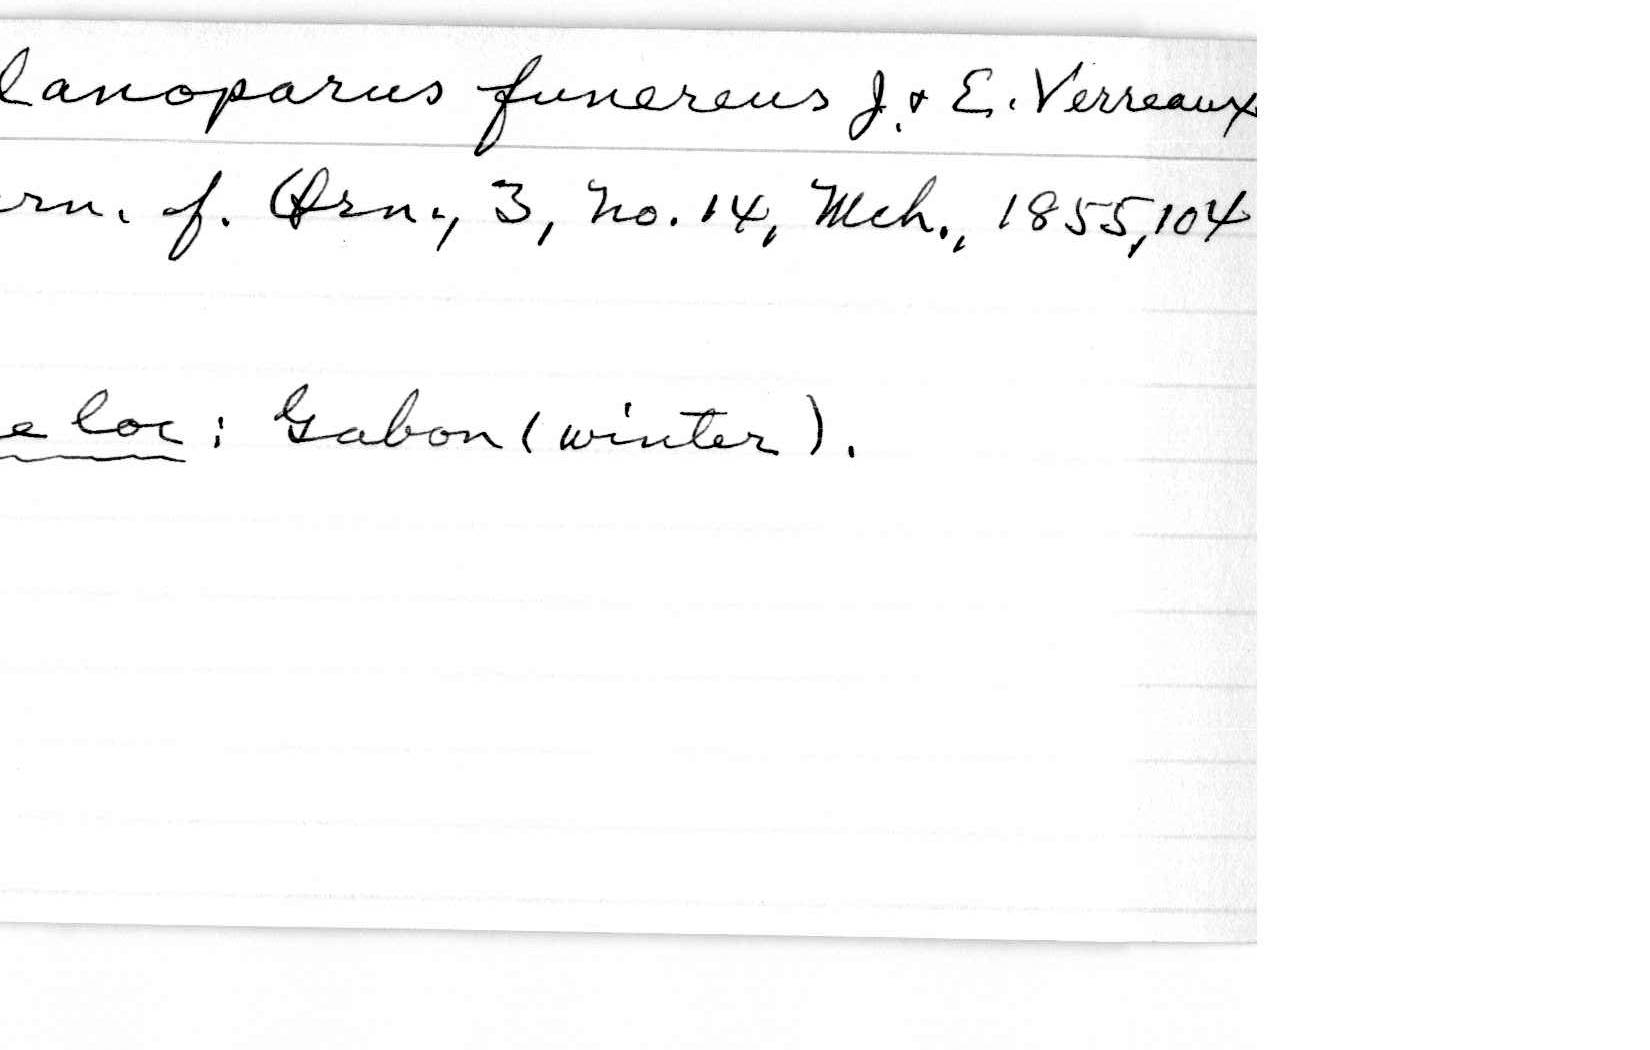 lanoparus funereus J. & E. Verreaux
rn. f. Orn., 3, no. 14, Mch., 1855, 104
e loc: Gabon (winter).